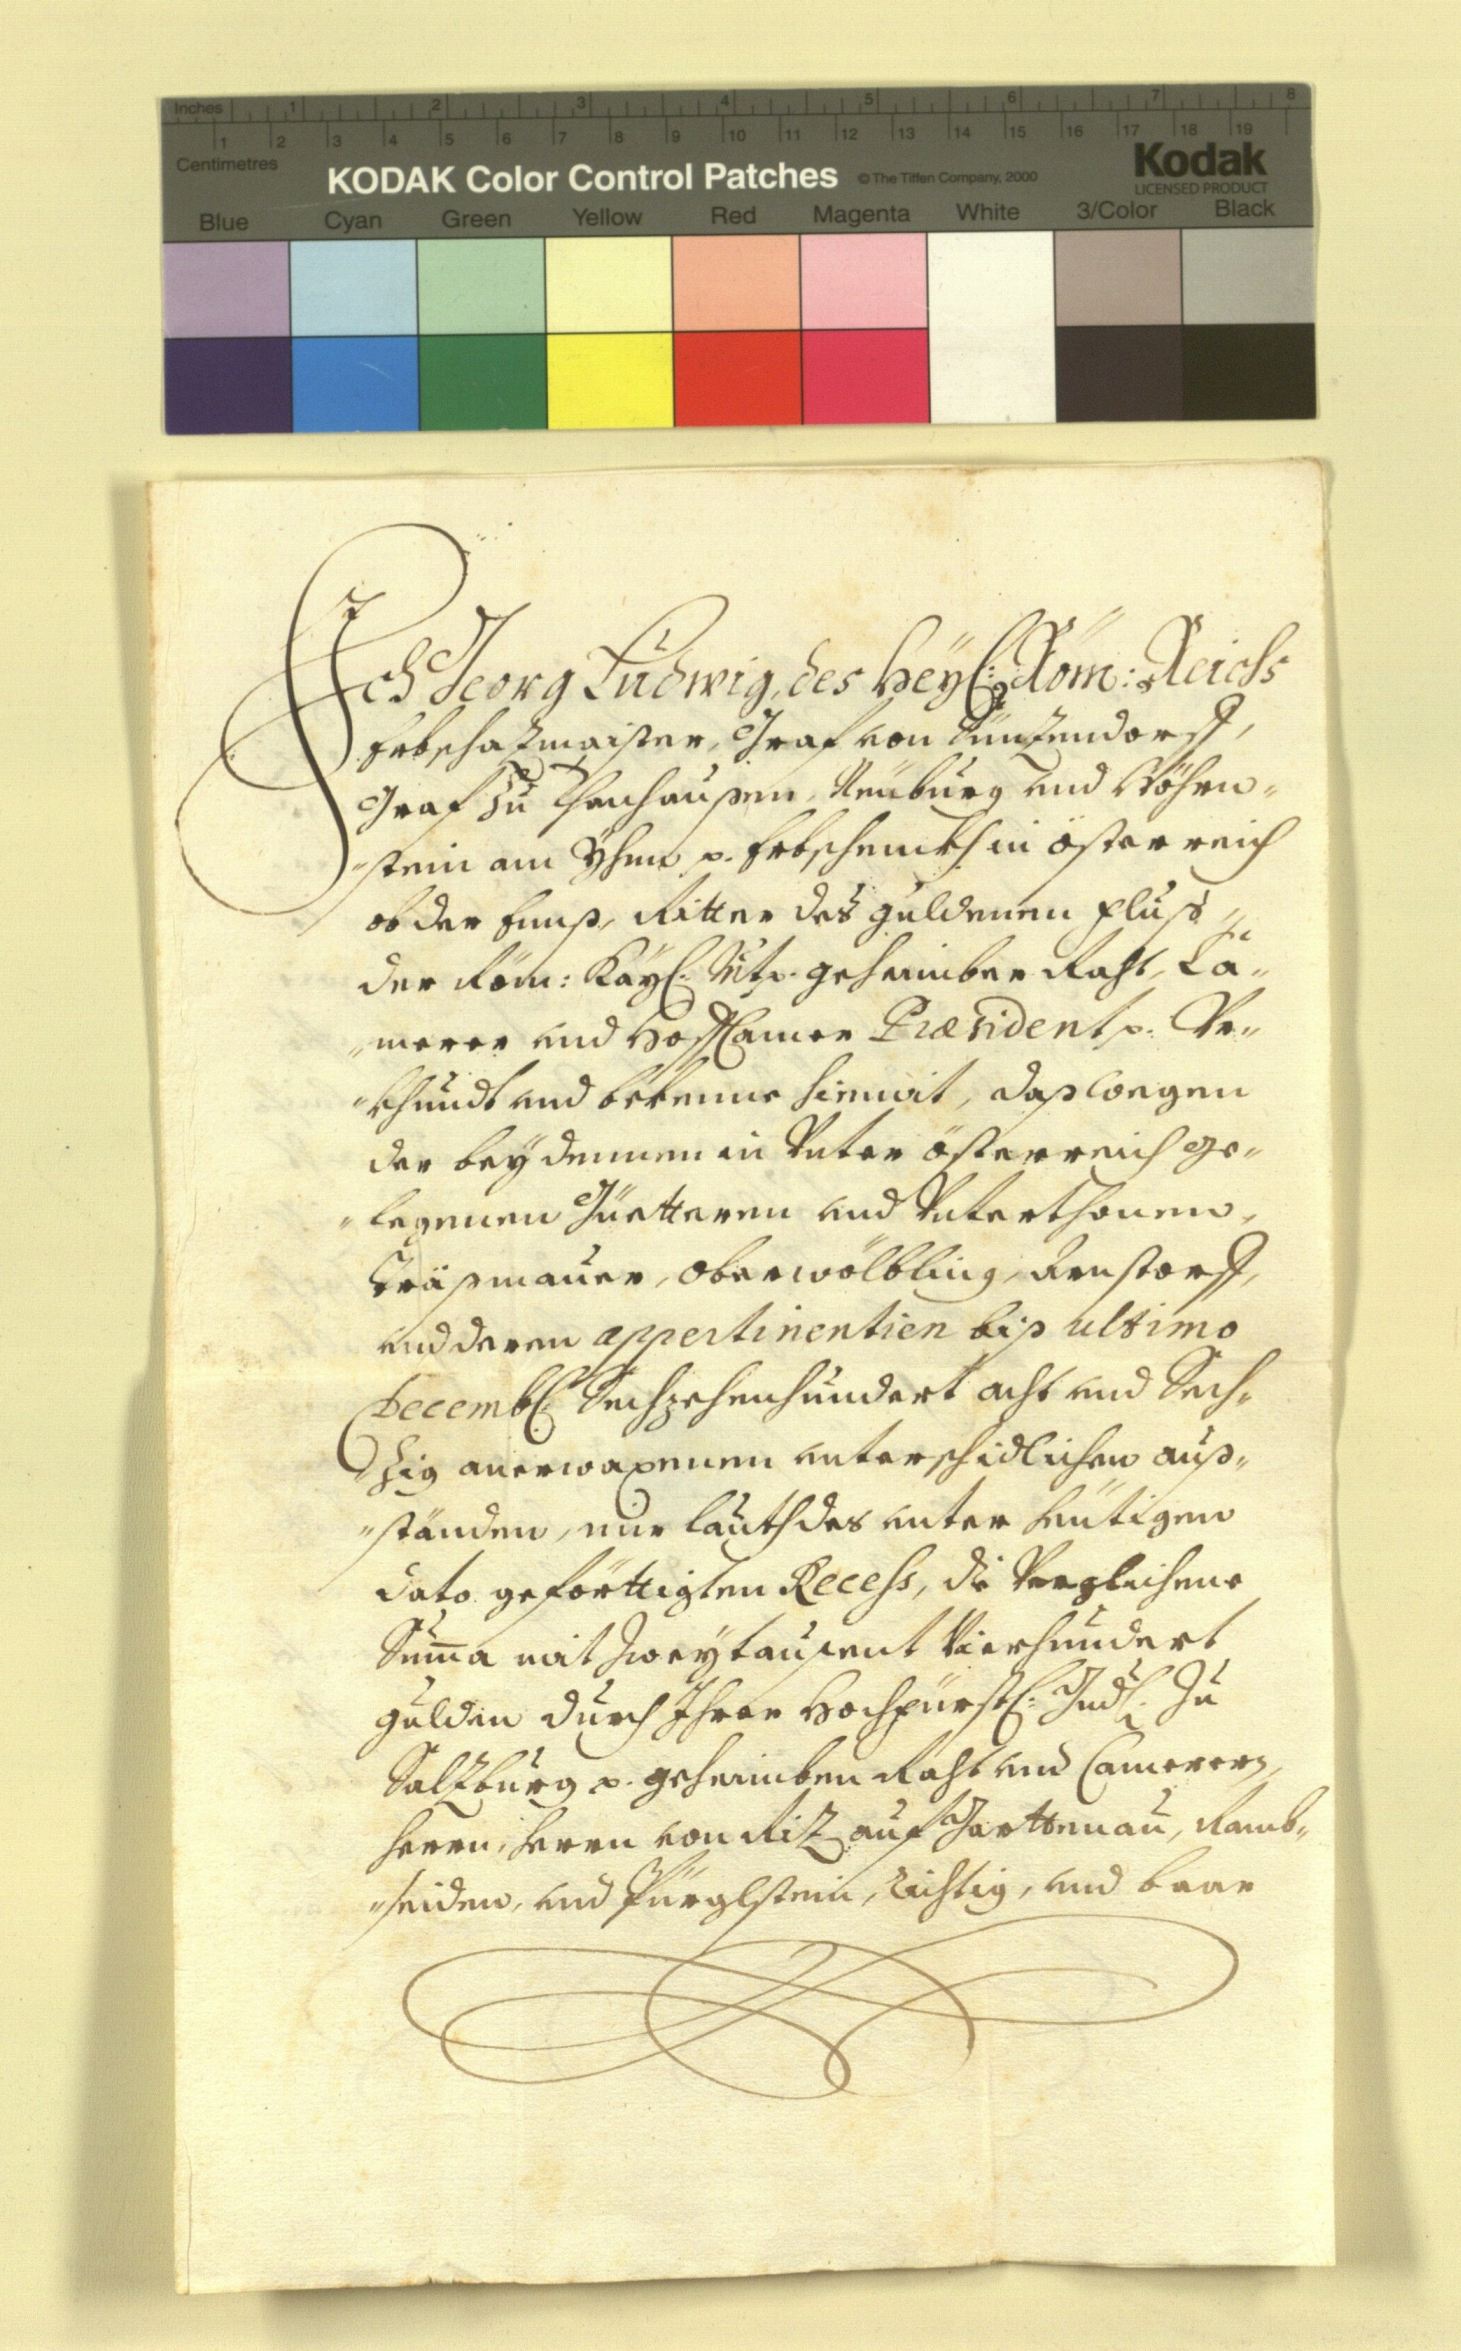 Inches 1 2 3 4 5 6 7 8
1 2 3 4 5 6 7 8 9 10 11 12 13 14 15 16 17 18 19
Centimetres
KODAK Color Control Patches © The Tiffen Company, 2000 Kodak
LICENSED PRODUCT
Blue Cyan Green Yellow Red Magenta White 3/Color Black
Ich Georg Ludwig, des Heyl: Röm: Reichs
Erbschatzmaister, Graf von Sintzendorff,
Graf zu Thanhaußen, Neuburg und
stein am p. Erbschenckh in österreich
ob der Ennß, Ritter des guldenen fluß,
der Röm: Kayl: Mt: p. geheimber Raht, Ca„
„merer und HoffCamer Præsident p. Ur„
„khundt und bekenne hiemit, daß wegen
der bey dennen in Unter österreich ge„
„legenen Güettern und Unterthonen,
Träßmauer, Oberwölbling, Arnstorff,
und deren appertinentien biß ultimo
Decembl: Sechzehenhundert acht und Sech„
zig anerwaxenen unterschidlichen auß„
„ständen, mir lauth des unter heutigen
dato geförttigten Recess, die Verglichene
Suma mit Zweytausent Vierhundert
gulden durch Ihrer Hochfürstl: Gndl: zu
Salzburg p. geheimben Raht und Camerern,
Herrn, Herrn von Riz auf Grättenau, Ramb„
„seiden, und Pürglstein, richtig, und baar